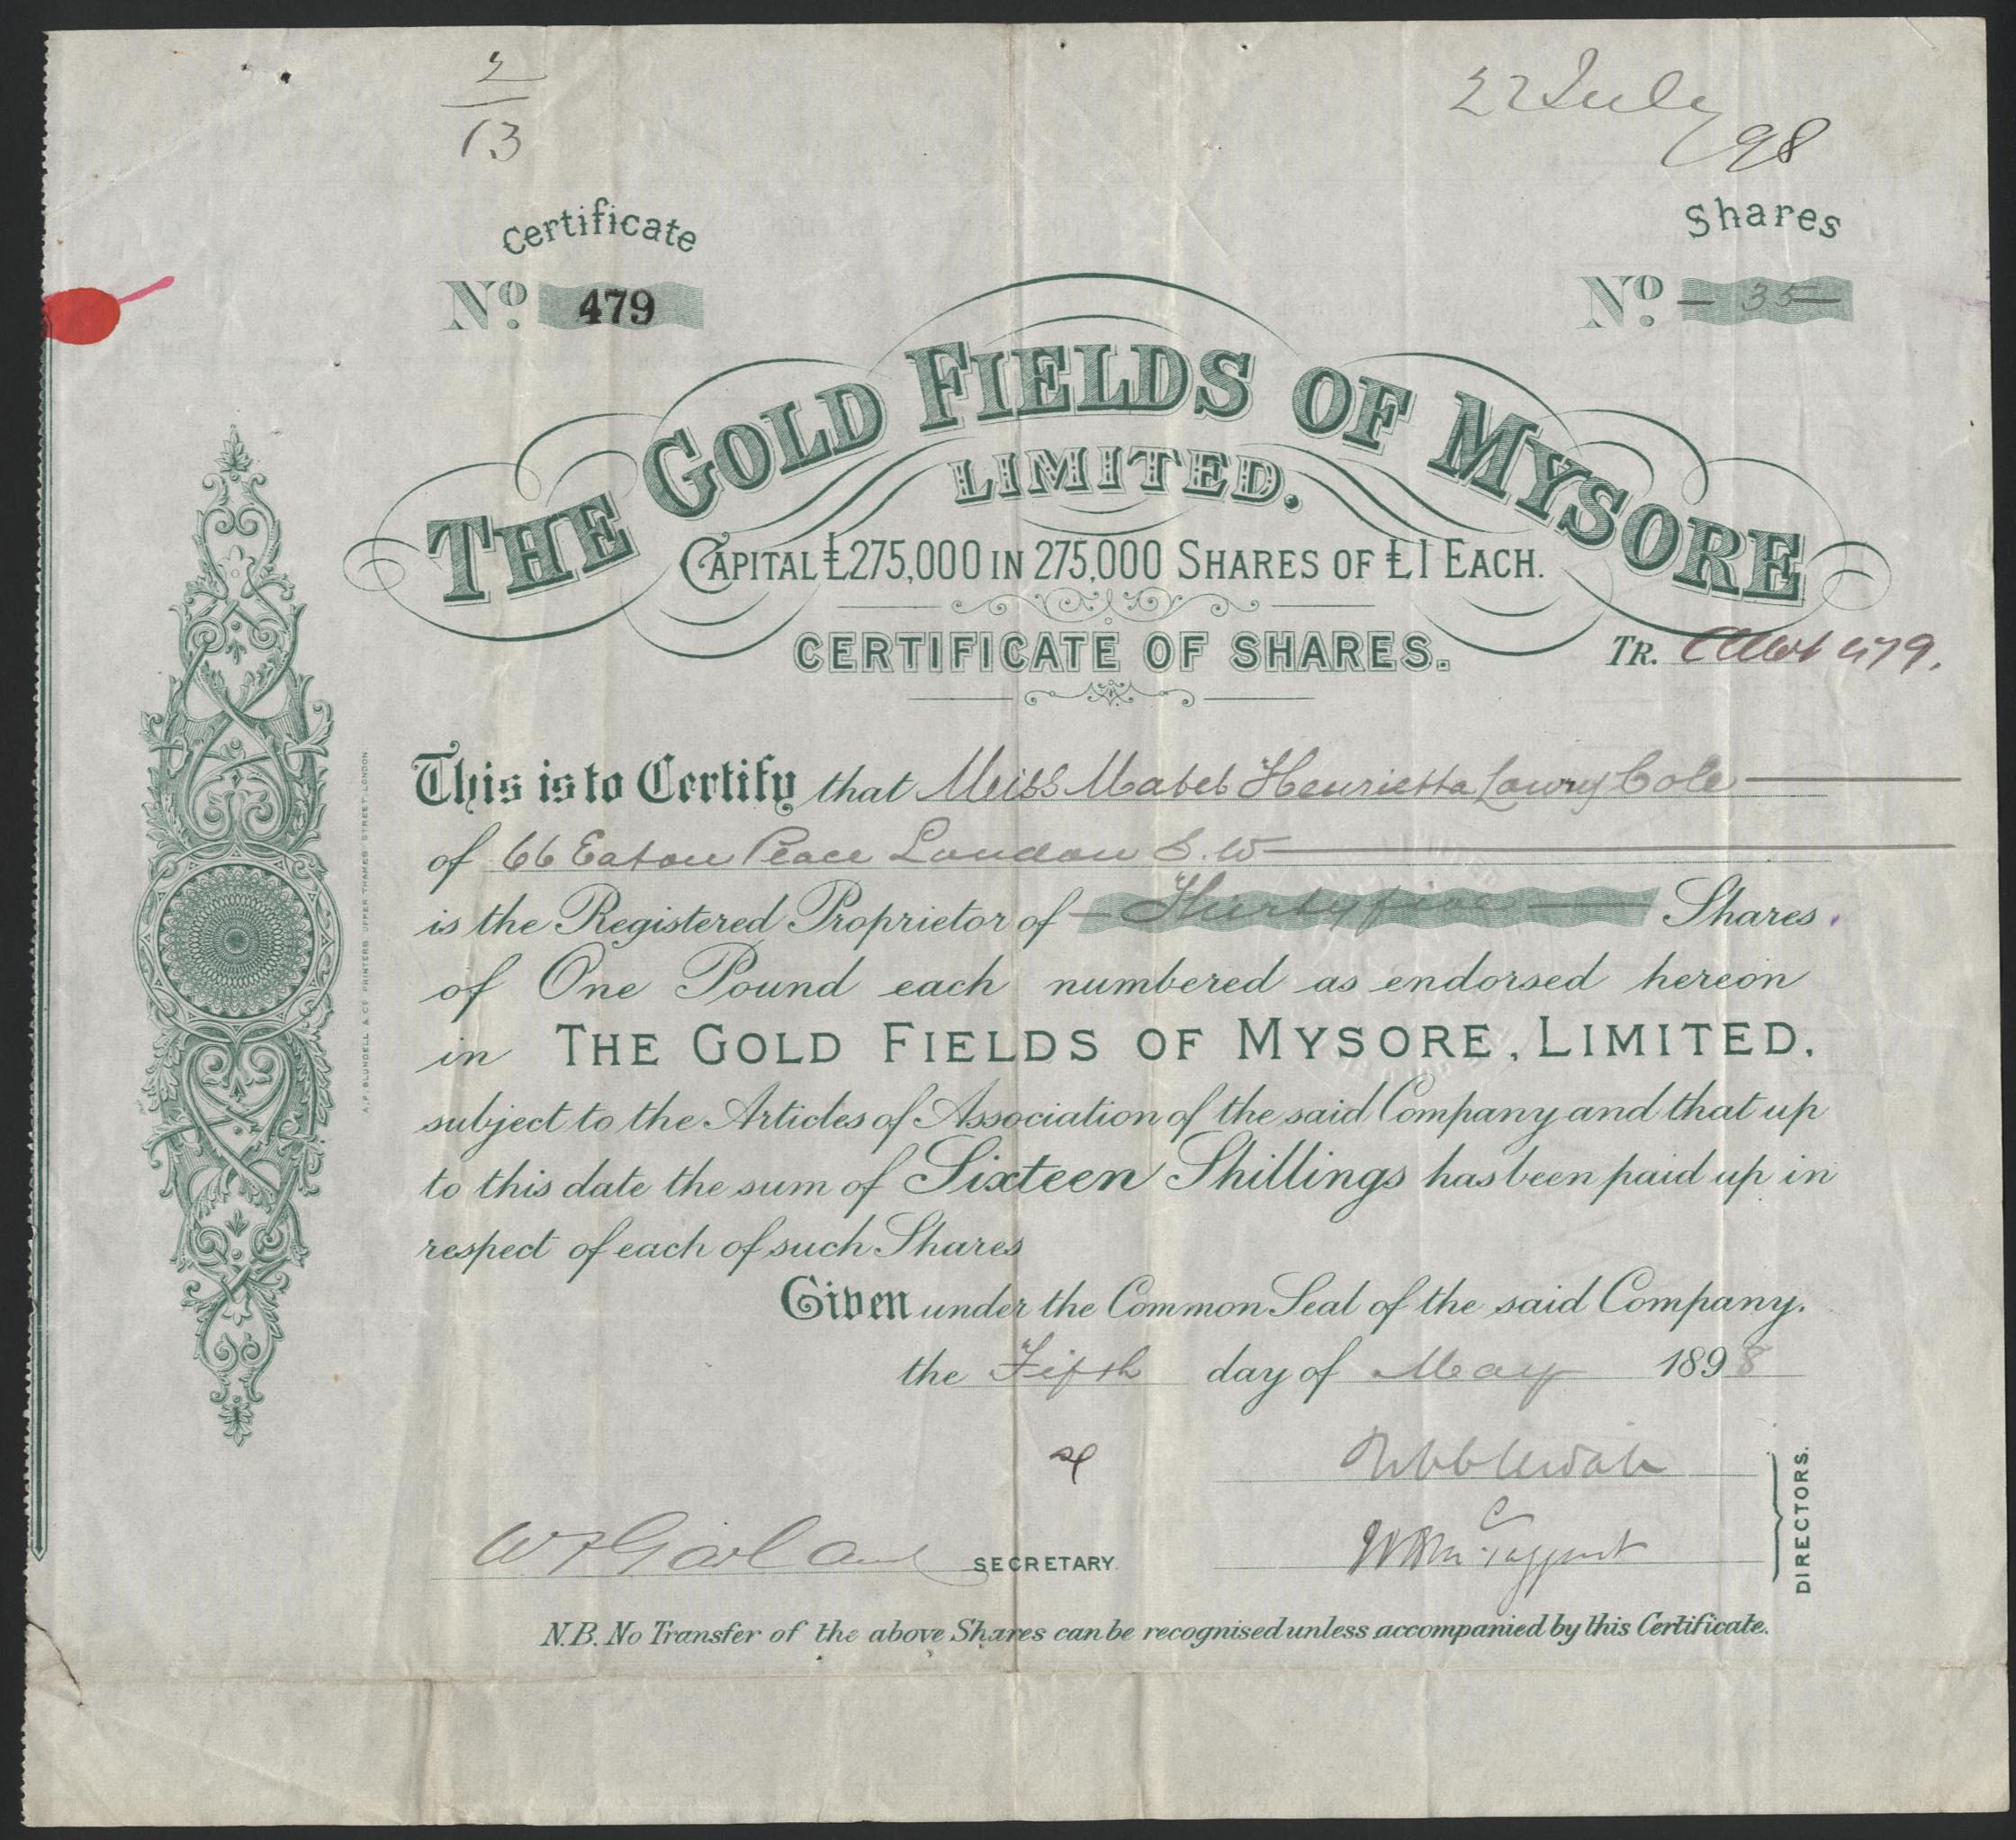 2
13
22 July
98
Certificate
Shares
No. 479
No. - 35 -
THE GOLD FIELDS OF MYSORE
LIMITED.
CAPITAL £275,000 IN 275,000 SHARES OF £1 EACH.
CERTIFICATE OF SHARES.
TR. Allot 479.
This is to Certify that Miss Mabel Henrietta Lowry Cole
of 66 Eaton Place London S.W
is the Registered Proprietor of - Thirty five - Shares
of One Pound each numbered as endorsed hereon
in THE GOLD FIELDS OF MYSORE, LIMITED.
subject to the Articles of Association of the said Company and that up
to this date the sum of Sixteen Shillings has been paid up in
respect of each of such Shares
Given under the Common Seal of the said Company.
the Fifth day of May 1898
W F Garland SECRETARY
W B McTaggart
DIRECTORS.
N.B. No Transfer of the above Shares can be recognised unless accompanied by this Certificate.
A. P. BLUNDELL & CO. PRINTERS UPPER THAMES STREET LONDON